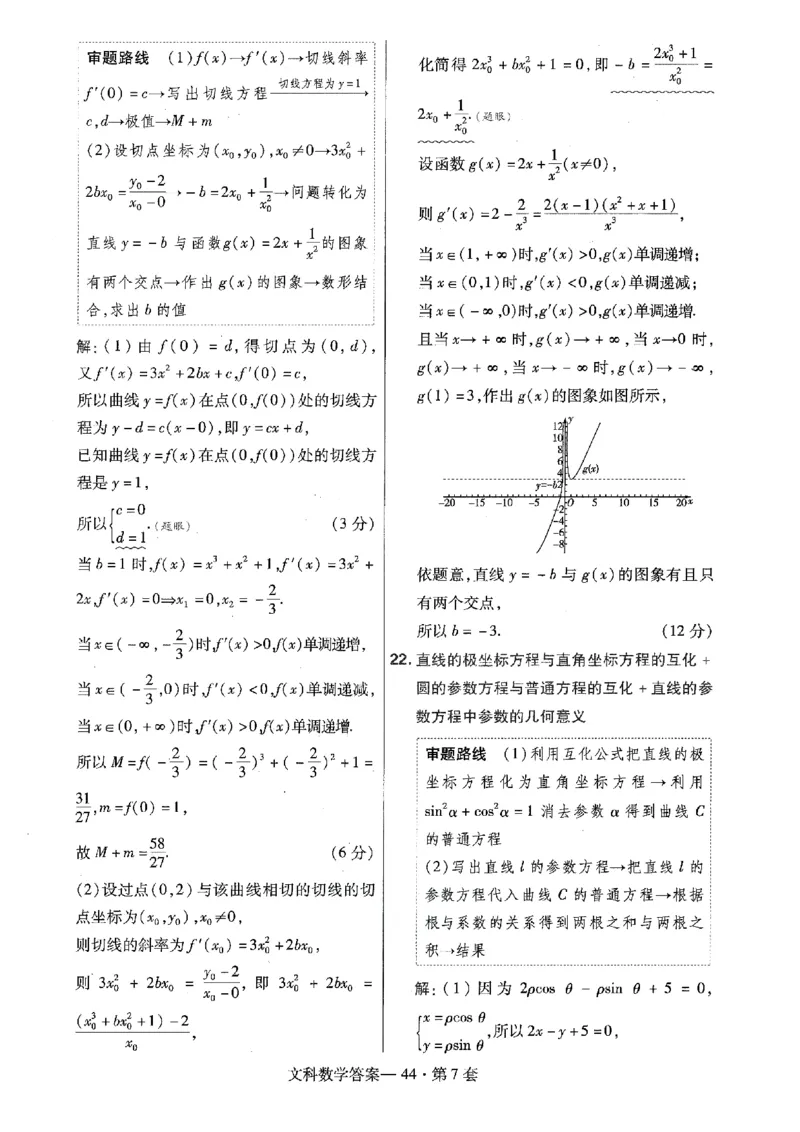 审题路线 (1)f(x)→f′(x)→切线斜率
f′(0)=c→写出切线方程 切线方程为y=1→
c,d→极值→M+m
(2)设切点坐标为(x₀,y₀),x₀≠0→3x₀²+
2bx₀=(y₀-2)/(x₀-0)→-b=2x₀+1/x₀²→问题转化为
直线y=-b与函数g(x)=2x+1/x²的图象
有两个交点→作出g(x)的图象→数形结
合,求出b的值
解:(1)由f(0)=d,得切点为(0,d),
又f′(x)=3x²+2bx+c,f′(0)=c,
所以曲线y=f(x)在点(0,f(0))处的切线方
程为y-d=c(x-0),即y=cx+d,
已知曲线y=f(x)在点(0,f(0))处的切线方
程是y=1,
所以{c=0
d=1.(题眼) (3分)
当b=1时,f(x)=x³+x²+1,f′(x)=3x²+
2x,f′(x)=0⇒x₁=0,x₂=-2/3.
当x∈(-∞,-2/3)时,f′(x)>0,f(x)单调递增,
当x∈(-2/3,0)时,f′(x)<0,f(x)单调递减,
当x∈(0,+∞)时,f′(x)>0,f(x)单调递增.
所以M=f(-2/3)=(-2/3)³+(-2/3)²+1=
31/27,m=f(0)=1,
故M+m=58/27. (6分)
(2)设过点(0,2)与该曲线相切的切线的切
点坐标为(x₀,y₀),x₀≠0,
则切线的斜率为f′(x₀)=3x₀²+2bx₀,
则3x₀²+2bx₀=(y₀-2)/(x₀-0),即3x₀²+2bx₀=
((x₀³+bx₀²+1)-2)/x₀,
化简得2x₀³+bx₀²+1=0,即-b=(2x₀³+1)/x₀²=
2x₀+1/x₀².(题眼)
设函数g(x)=2x+1/x²(x≠0),
则g′(x)=2-2/x³=2(x-1)(x²+x+1)/x³,
当x∈(1,+∞)时,g′(x)>0,g(x)单调递增;
当x∈(0,1)时,g′(x)<0,g(x)单调递减;
当x∈(-∞,0)时,g′(x)>0,g(x)单调递增.
且当x→+∞时,g(x)→+∞,当x→0时,
g(x)→+∞,当x→-∞时,g(x)→-∞,
g(1)=3,作出g(x)的图象如图所示,
y
12
10
8
6
4
g(x)
y=-b
2
-20 -15 -10 -5 0 5 10 15 20 x
-2
-4
-6
-8
依题意,直线y=-b与g(x)的图象有且只
有两个交点,
所以b=-3. (12分)
22.直线的极坐标方程与直角坐标方程的互化+
圆的参数方程与普通方程的互化+直线的参
数方程中参数的几何意义
审题路线 (1)利用互化公式把直线的极
坐标方程化为直角坐标方程→利用
sin²α+cos²α=1消去参数α得到曲线C
的普通方程
(2)写出直线l的参数方程→把直线l的
参数方程代入曲线C的普通方程→根据
根与系数的关系得到两根之和与两根之
积→结果
解:(1)因为2ρcos θ-ρsin θ+5=0,
{x=ρcos θ
y=ρsin θ,所以2x-y+5=0,
文科数学答案—44·第7套